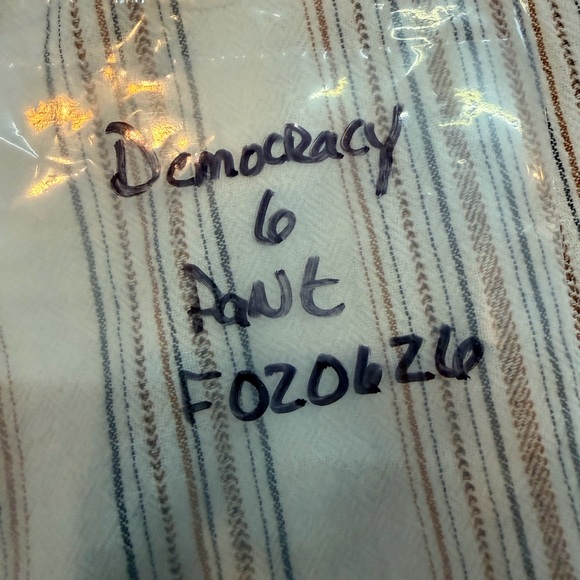 Democracy
6
Pant
F020626